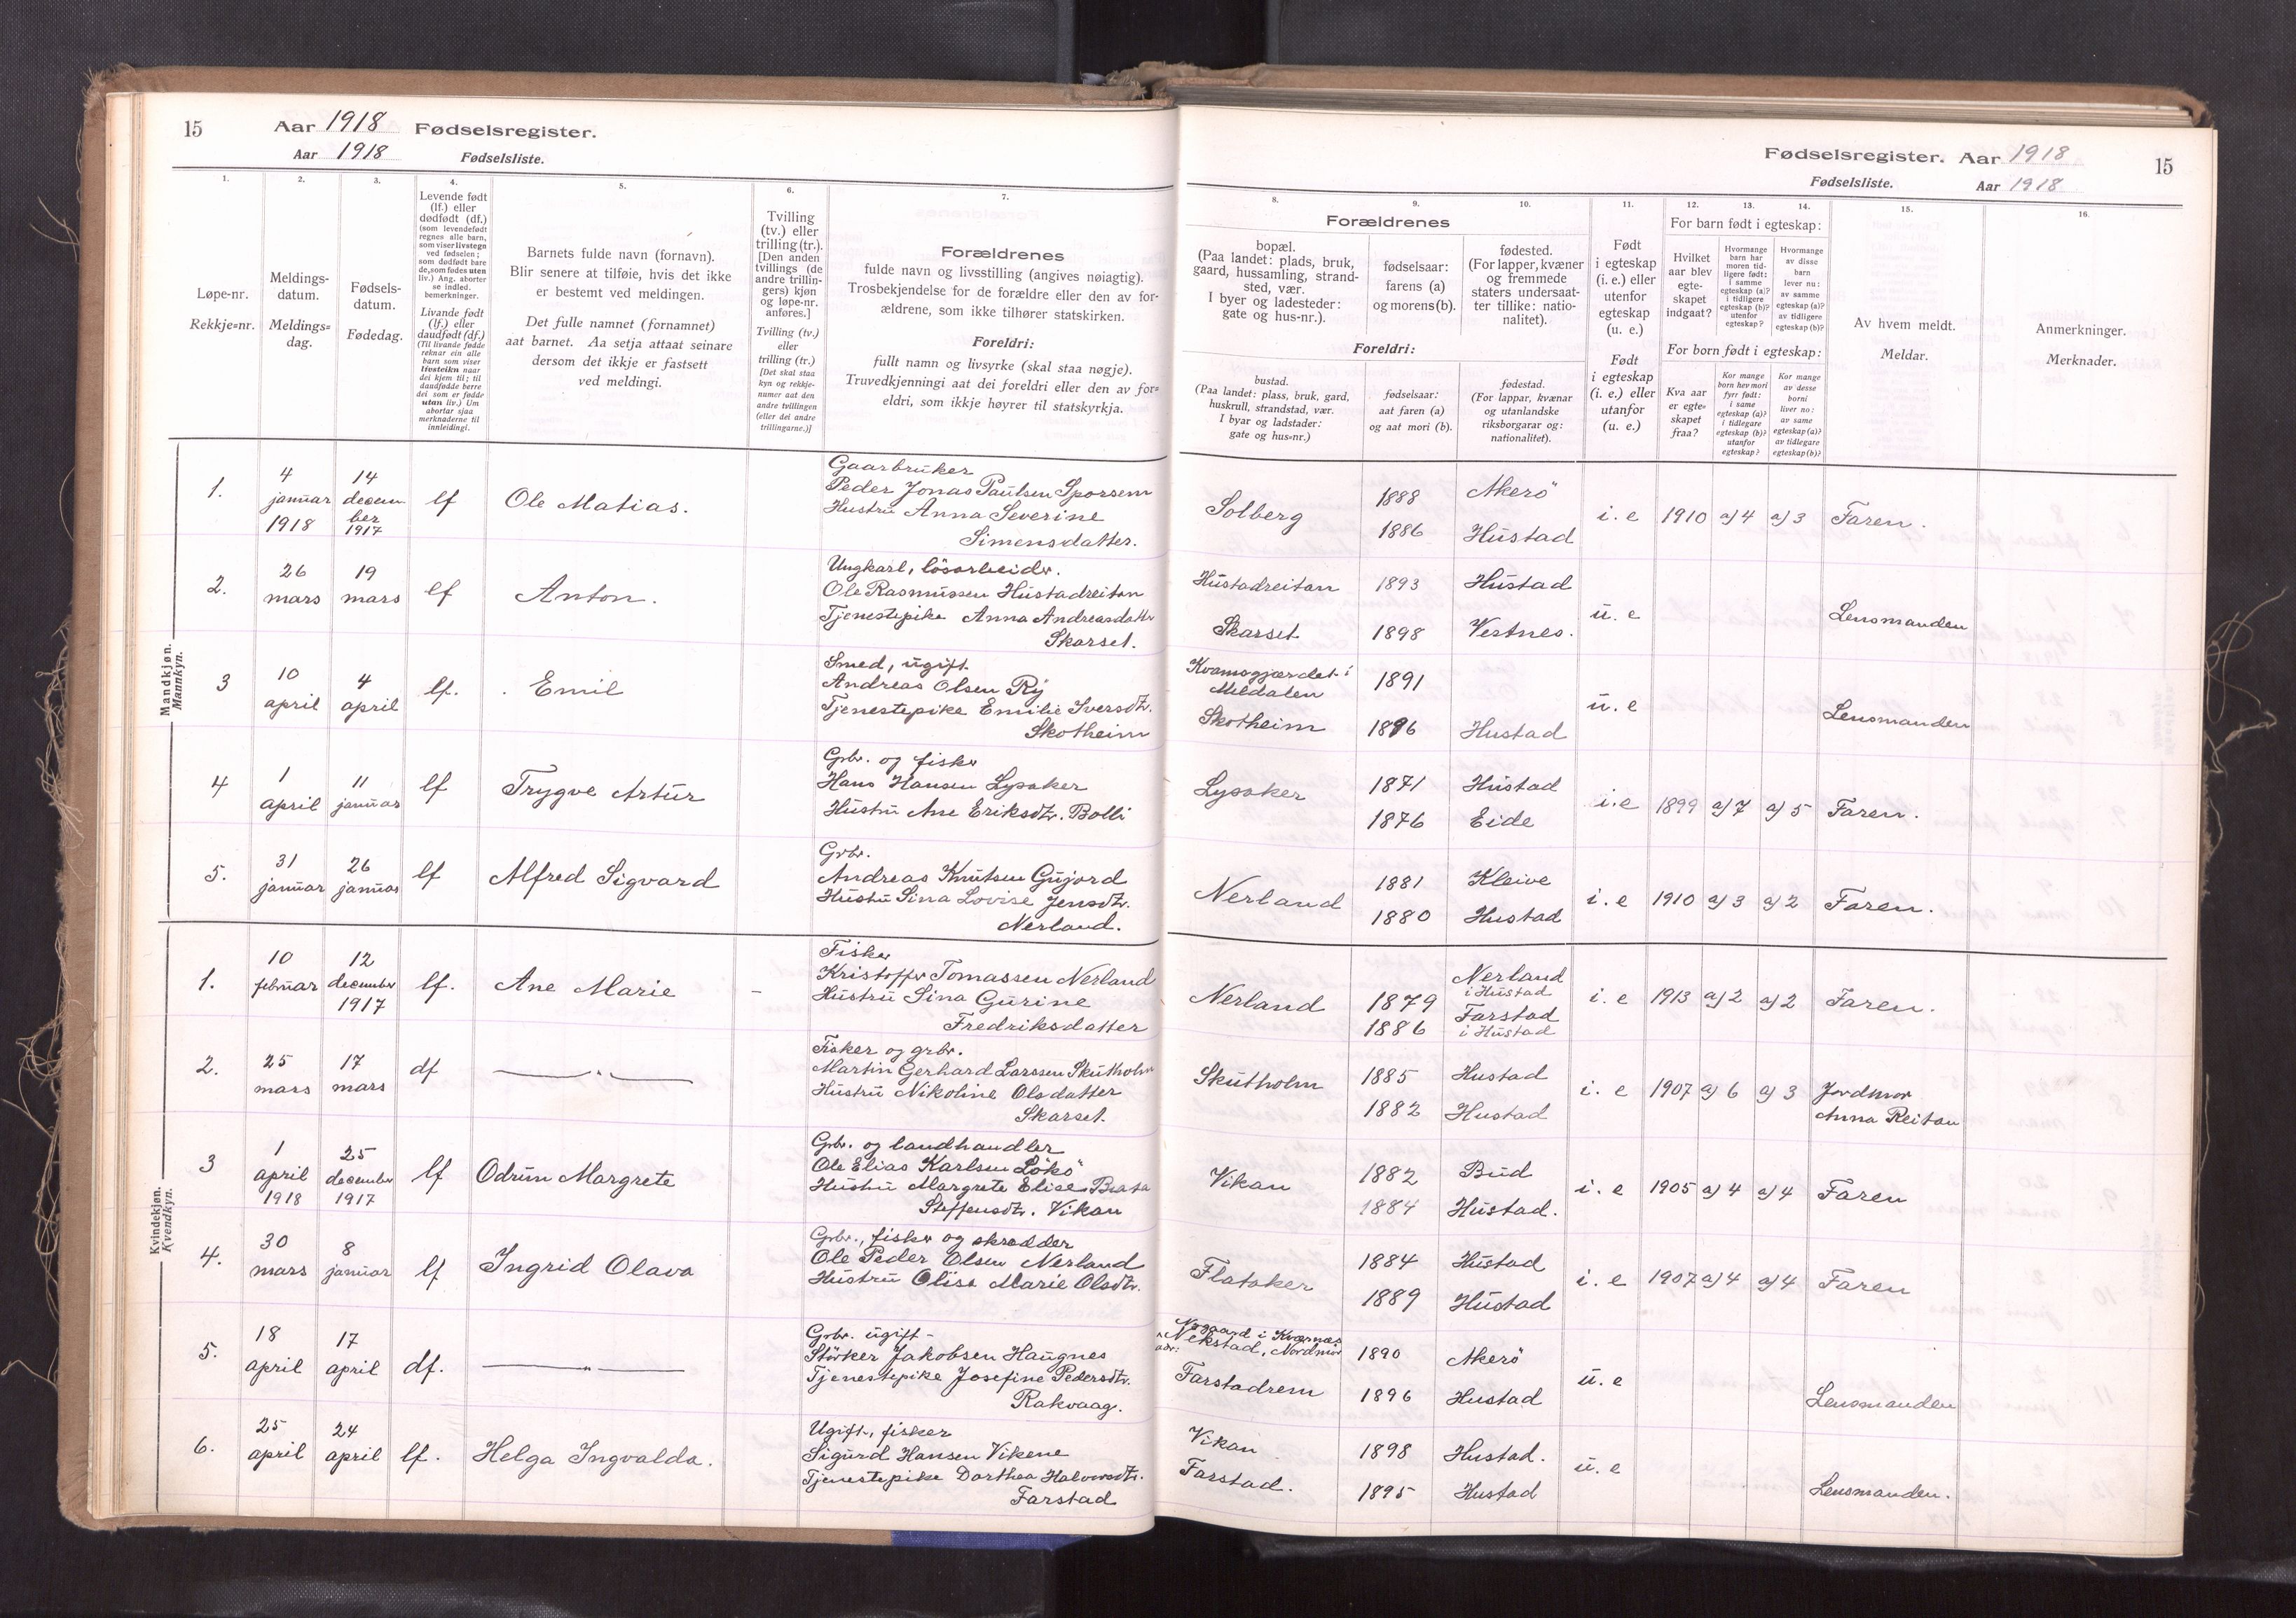 15 Aar 1918 Fødselsregister.
Aar 1918 Fødselsliste.
1. 2. 3. 4. 5. 6. 7.
Løpe-nr.
Rekkje=nr.
Meldings-
datum.
Meldings=
dag.
Fødsels-
datum.
Fødedag.
Levende født
(lf.) eller
dødfødt (df.)
(som levendefødt
regnes alle barn,
som viser livstegn
ved fødselen;
som dødfødt bare
de, som fødes uten
liv.) Ang. aborter
se indled.
bemerkninger.
Livande født
(lf.) eller
daudfødt (df.)
(Til livande fødde
reknar ein alle
barn som viser
livsteikn naar
dei kjem til; til
daudfødde berre
dei som er fødde
utan liv.) Um
abortar sjaa
merknaderne til
innleidingi.
Barnets fulde navn (fornavn).
Blir senere at tilføie, hvis det ikke
er bestemt ved meldingen.
Det fulle namnet (fornamnet)
aat barnet. Aa setja attaat seinare
dersom det ikkje er fastsett
ved meldingi.
Tvilling
(tv.) eller
trilling (tr.).
[Den anden
tvillings (de
andre trillin-
gers) kjøn
og løpe-nr.
anføres.]
Tvilling (tv.)
eller
trilling (tr.)
[Det skal staa
kyn og rekkje-
numer aat den
andre tvillingen
(eller dei andre
trillingarne.)]
Forældrenes
fulde navn og livsstilling (angives nøiagtig).
Trosbekjendelse for de forældre eller den av for-
ældrene, som ikke tilhører statskirken.
Foreldri:
fullt namn og livsyrke (skal staa nøgje).
Truvedkjenningi aat dei foreldri eller den av for=
eldri, som ikkje høyrer til statskyrkja.
Mandkjøn.
Mannkyn.
1. 4 januar 1918 14 decem ber 1917 lf Ole Matias.
Gaarbruker
Peder Jonas Paulsen Sporsem
Hustru Anna Severine
Simensdatter.
2. 26 mars 19 mars lf Anton.
Ungkarl, lösarbeider.
Ole Rasmussen Hustadreitan
Tjenestepike Anna Andreasdatter
Skarset.
3 10 april 4 april lf. Emil
Smed, ugift.
Andreas Olsen Ry
Tjenestepike Emilie Iversdtr.
Skotheim
4 1 april 11 januar lf Trygve Artur
Grbr. og fisker
Hans Hansen Lysaker
Hustru Ane Eriksdtr. Bolli
5. 31 januar 26 januar lf Alfred Sigvard
Grbr.
Andreas Knutsen Gujord
Hustru Sina Lovise Jensdtr.
Nerland.
Kvindekjøn.
Kvendkyn.
1. 10 februar 12 december 1917 lf. Ane Marie
Fisker
Kristoffer Tomassen Nerland
Hustru Sina Gurine
Fredriksdatter
2. 25 mars 17 mars df — „ —
Fisker og grbr.
Martin Gerhard Larssen Skutholm
Hustru Nikoline Olsdatter
Skarset.
3 1 april 1918 25 december 1917 lf Odrun Margrete
Grbr. og landhandler
Ole Elias Karlsen Lökö
Hustru Margrete Elise Beata
Steffensdtr. Vikan
4. 30 mars 8 januar lf Ingrid Olava
Grbr., fisker og skrædder
Ole Peder Olsen Nerland
Hustru Olise Marie Olsdtr.
5. 18 april 17 april df. — „ —
Grbr. ugift -
Störker Jakobsen Haugnes
Tjenestepike Josefine Pedersdtr.
Rakvaag.
6. 25 april 24 april lf. Helga Ingvalda.
Ugift, fisker
Sigurd Hansen Vikene
Tjenestepike Dorthea Halvorsdtr.
Farstad
Fødselsregister. Aar 1918 15
Fødselsliste. Aar 1918
8. 9. 10. 11. 12. 13. 14. 15. 16.
Forældrenes
bopæl.
(Paa landet: plads, bruk,
gaard, hussamling, strand-
sted, vær.
I byer og ladesteder:
gate og hus-nr.).
fødselsaar:
farens (a)
og morens (b).
fødested.
(For lapper, kvæner
og fremmede
staters undersaat-
ter tillike: natio-
nalitet).
Foreldri:
bustad.
(Paa landet: plass, bruk, gard,
huskrull, strandstad, vær.
I byar og ladstader:
gate og hus=nr.)
fødselsaar:
aat faren (a)
og aat mori (b).
fødestad.
(For lappar, kvænar
og utanlandske
riksborgarar og:
nationalitet).
Født
i egteskap
(i. e.) eller
utenfor
egteskap
(u. e.)
Født
i egteskap
(i. e.) eller
utanfor
(u. e.)
For barn født i egteskap:
Hvilket
aar blev
egte-
skapet
indgaat?
Hvormange
barn har
moren tid-
ligere født:
i samme
egteskap (a)?
i tidligere
egteskap (b)?
utenfor
egteskap?
Hvormange
av disse
barn
lever nu:
av samme
egteskap (a)?
av tidligere
egteskap (b)?
For born født i egteskap:
Kva aar
er egte=
skapet
fraa?
Kor mange
born hev mori
fyrr født:
i same
egteskap (a)?
i tidlegare
egteskap (b)?
utanfor
egteskap?
Kor mange
av desse
borni
liver no:
av same
egteskap (a)?
av tidlegare
egteskap (b)?
Av hvem meldt.
Meldar.
Anmerkninger.
Merknader.
Solberg 1888 Akerö i. e 1910 a) 4 a) 3 Faren.
1886 Hustad
Hustadreitan 1893 Hustad u. e Lensmanden
Skarset 1898 Vestnes.
Kvamsgjærdet i
Meldalen 1891 u. e Lensmanden
Skotheim 1896 Hustad
Lysaker 1871 Hustad i. e 1899 a) 7 a) 5 Faren.
1876 Eide
Nerland 1881 Kleive i. e 1910 a) 3 a) 2 Faren.
1880 Hustad
Nerland 1879 Nerland i Hustad i. e 1913 a) 2 a) 2 Faren.
1886 Farstad i Hustad
Skutholm 1885 Hustad i. e 1907 a) 6 a) 3 Jordmor
1882 Hustad Anna Reitan
Vikan 1882 Bud i. e 1905 a) 4 a) 4 Faren
1884 Hustad.
Flataker 1884 Hustad i. e 1907 a) 4 a) 4 Faren
1889 Hustad
i Kværnes
adr: Nekstad, Nordmör 1890 Akerö u. e
Farstadrem 1896 Hustad Lensmanden
Vikan 1898 Hustad. u. e
Farstad. 1895 Hustad Lensmanden.